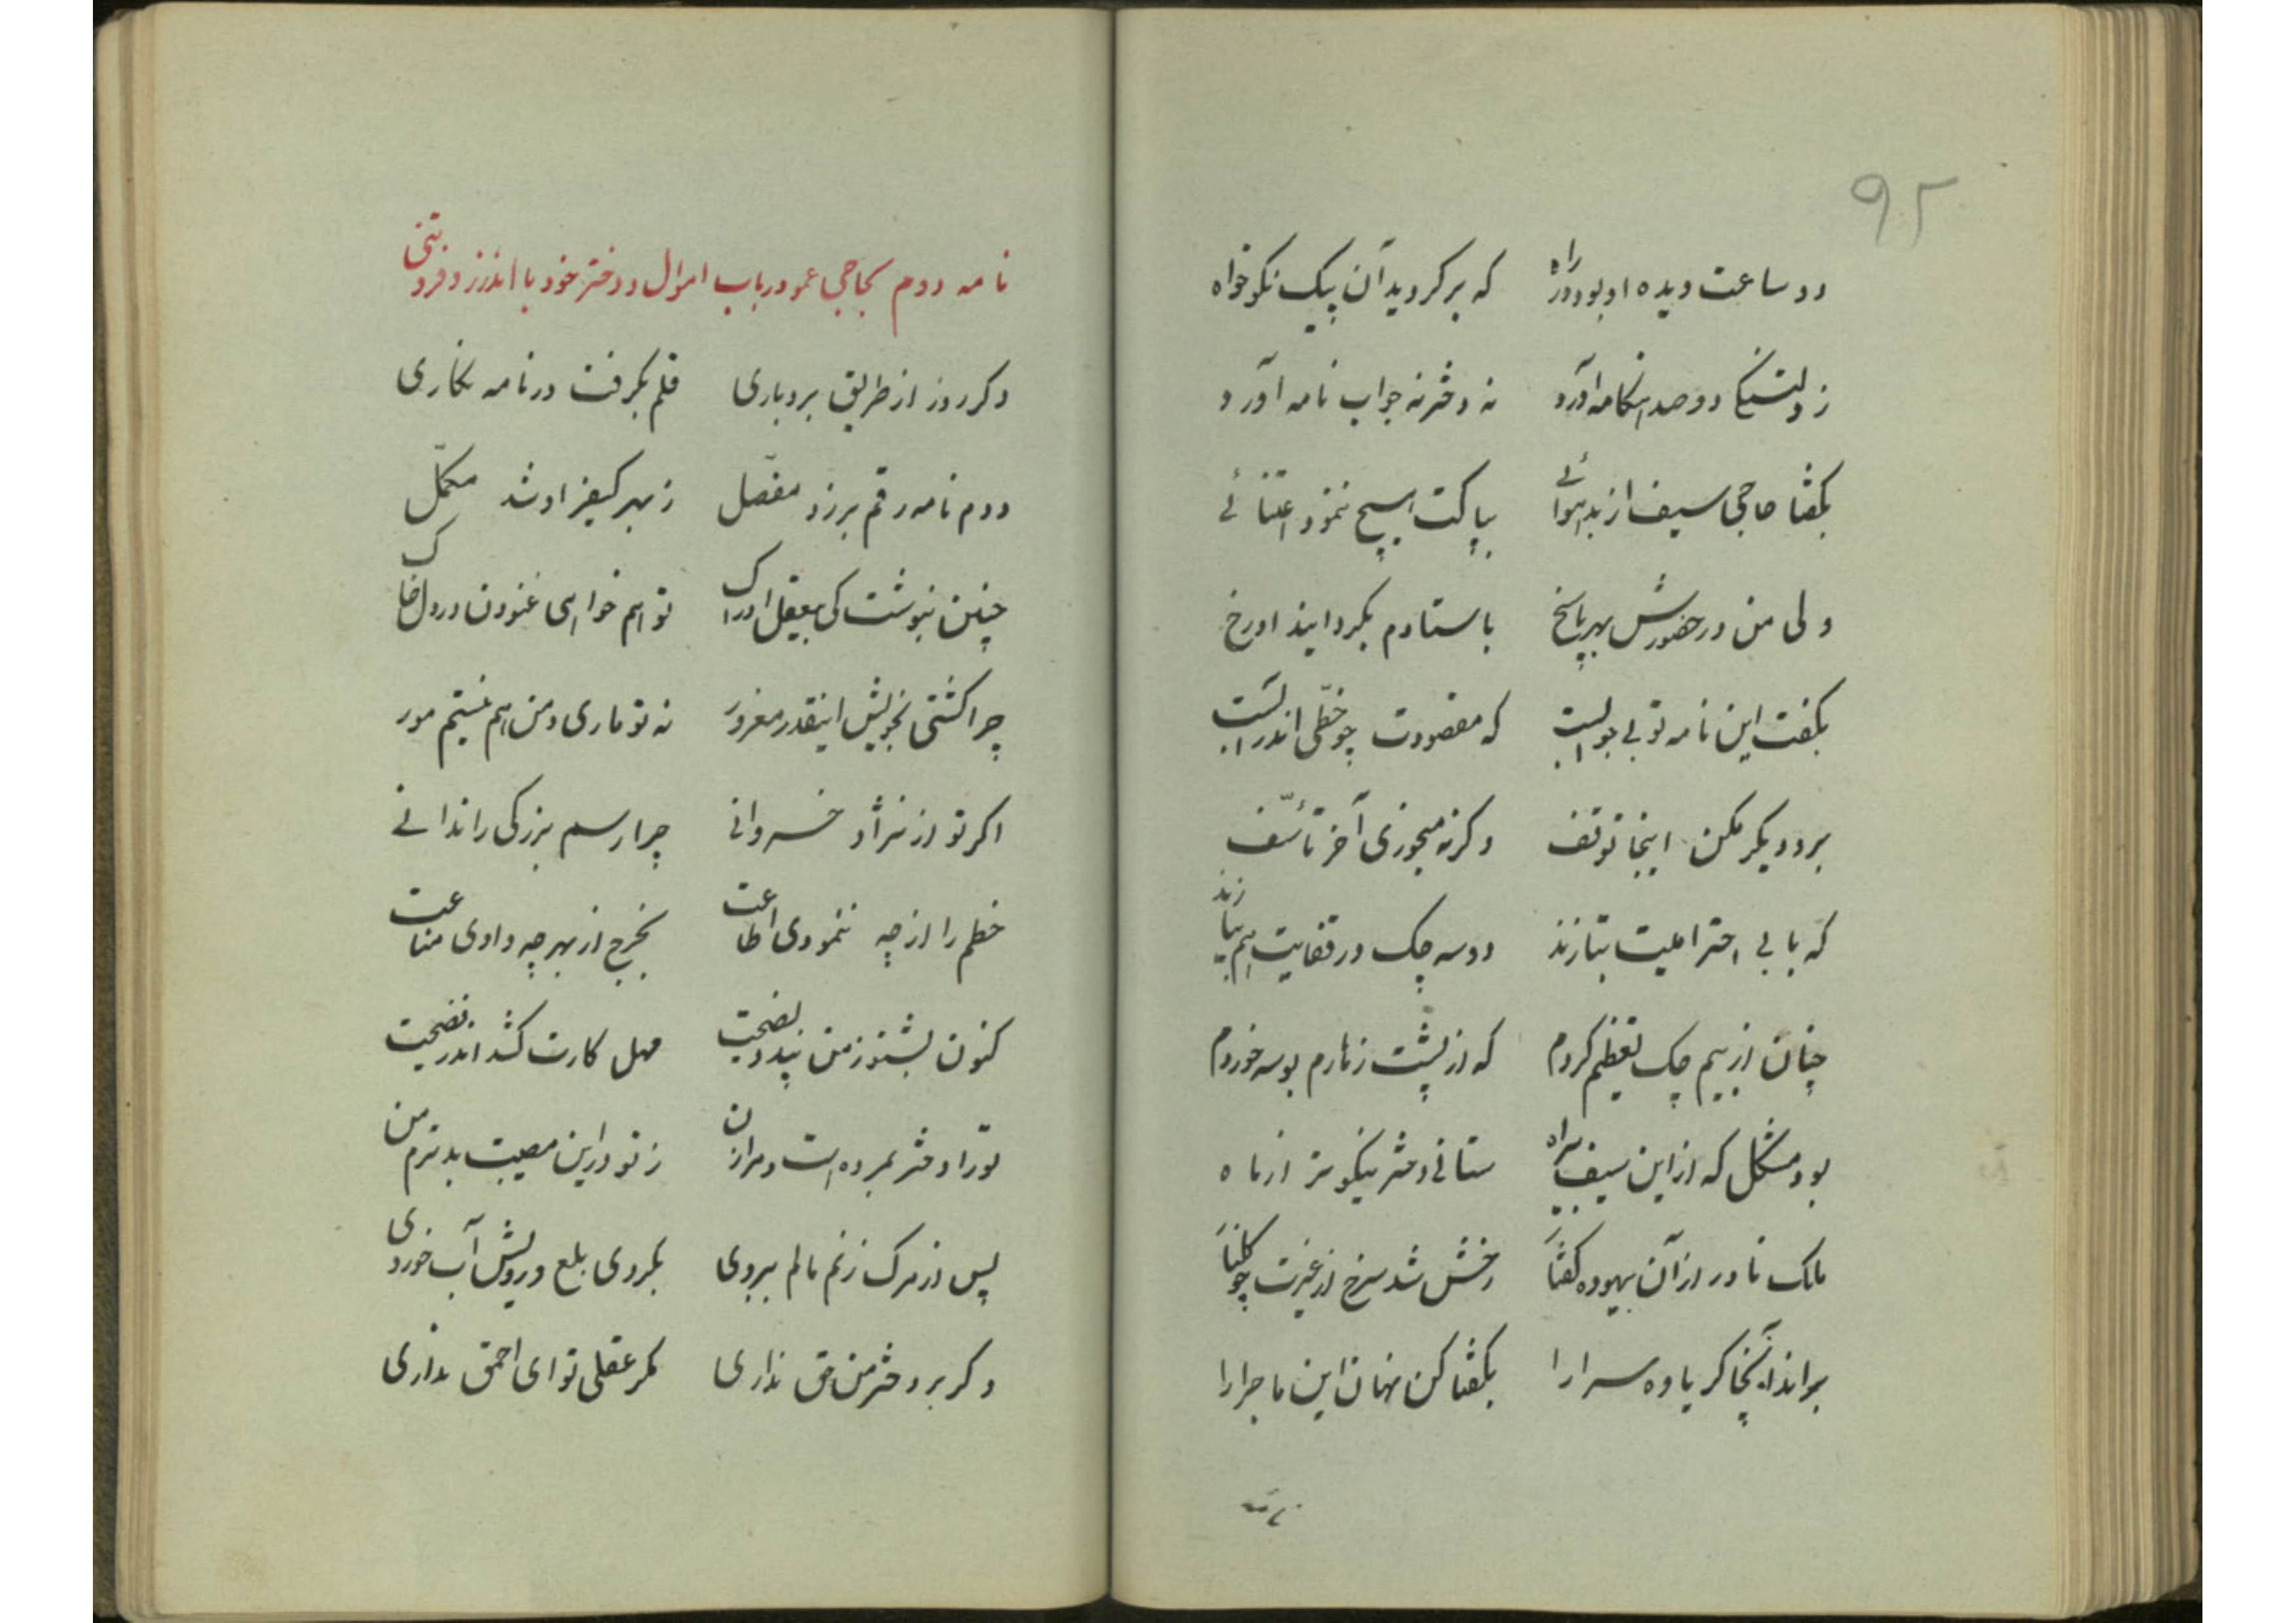 ۹۲
دو ساعت دیده او بود در راه که برگردید آن پیک نکوخواه
ز دلتنگی دو صد هنگامه آورد نه دختر نه جواب نامه آورد
بگفتا حاجی سیف از بد هوائی بپاکت هیچ ننمود اعتنائی
ولی من در حضورش بهر پاسخ باستادم بگردانید او رخ
بگفت این نامه تو بی جوابست که مقصودت چو خطی اندر آبست
برو دیگر مکن اینجا توقف وگرنه میخوری آخر تأسف
که با بی احترامیت بتازند دو سه چک در قفایت هم
چنان از بیم چک تعظیم کردم که از پشت زهارم بوسه خوردم
بود مشکل که از این سیف بیراه ستانی دختر نیکوتر از ماه
ملک نادر از آن بیهوده گفتار رخش شد سرخ از غیرت چو گلنار
براند آنجا گر یاوه سرا را بگفتا کن نهان این ماجرا را
نامه دوم بحاجی عمو در باب اموال و دختر خود با اندرز و فروتنی
دگر روز از طریق بردباری قلم بگرفت در نامه نگاری
دوم نامه رقم بر زد مفصل ز بهر کیفر او شد مکمل
چنین بنوشت کی بیعقل ادراک تو هم خواهی غنودن در دل خاک
چرا گشتی بخویش اینقدر مغرور نه تو ماری و من هم نیستم مور
اگر تو از نژاد خسروانی چرا رسم بزرگی را ندانی
خطم را از چه ننمودی اطاعت بخرج از بهر چه دادی مناعت
کنون بشنو ز من پند و نصیحت مهل کارت کشد اندر فضیحت
تو را دختر بمرده است و مرا زن ز تو در این مصیبت بدترم من
پس از مرگ زنم مالم ببردی بکردی بلع و رویش آب خوردی
دگر بر دختر من حق نداری مگر عقلی تو ای احمق نداری